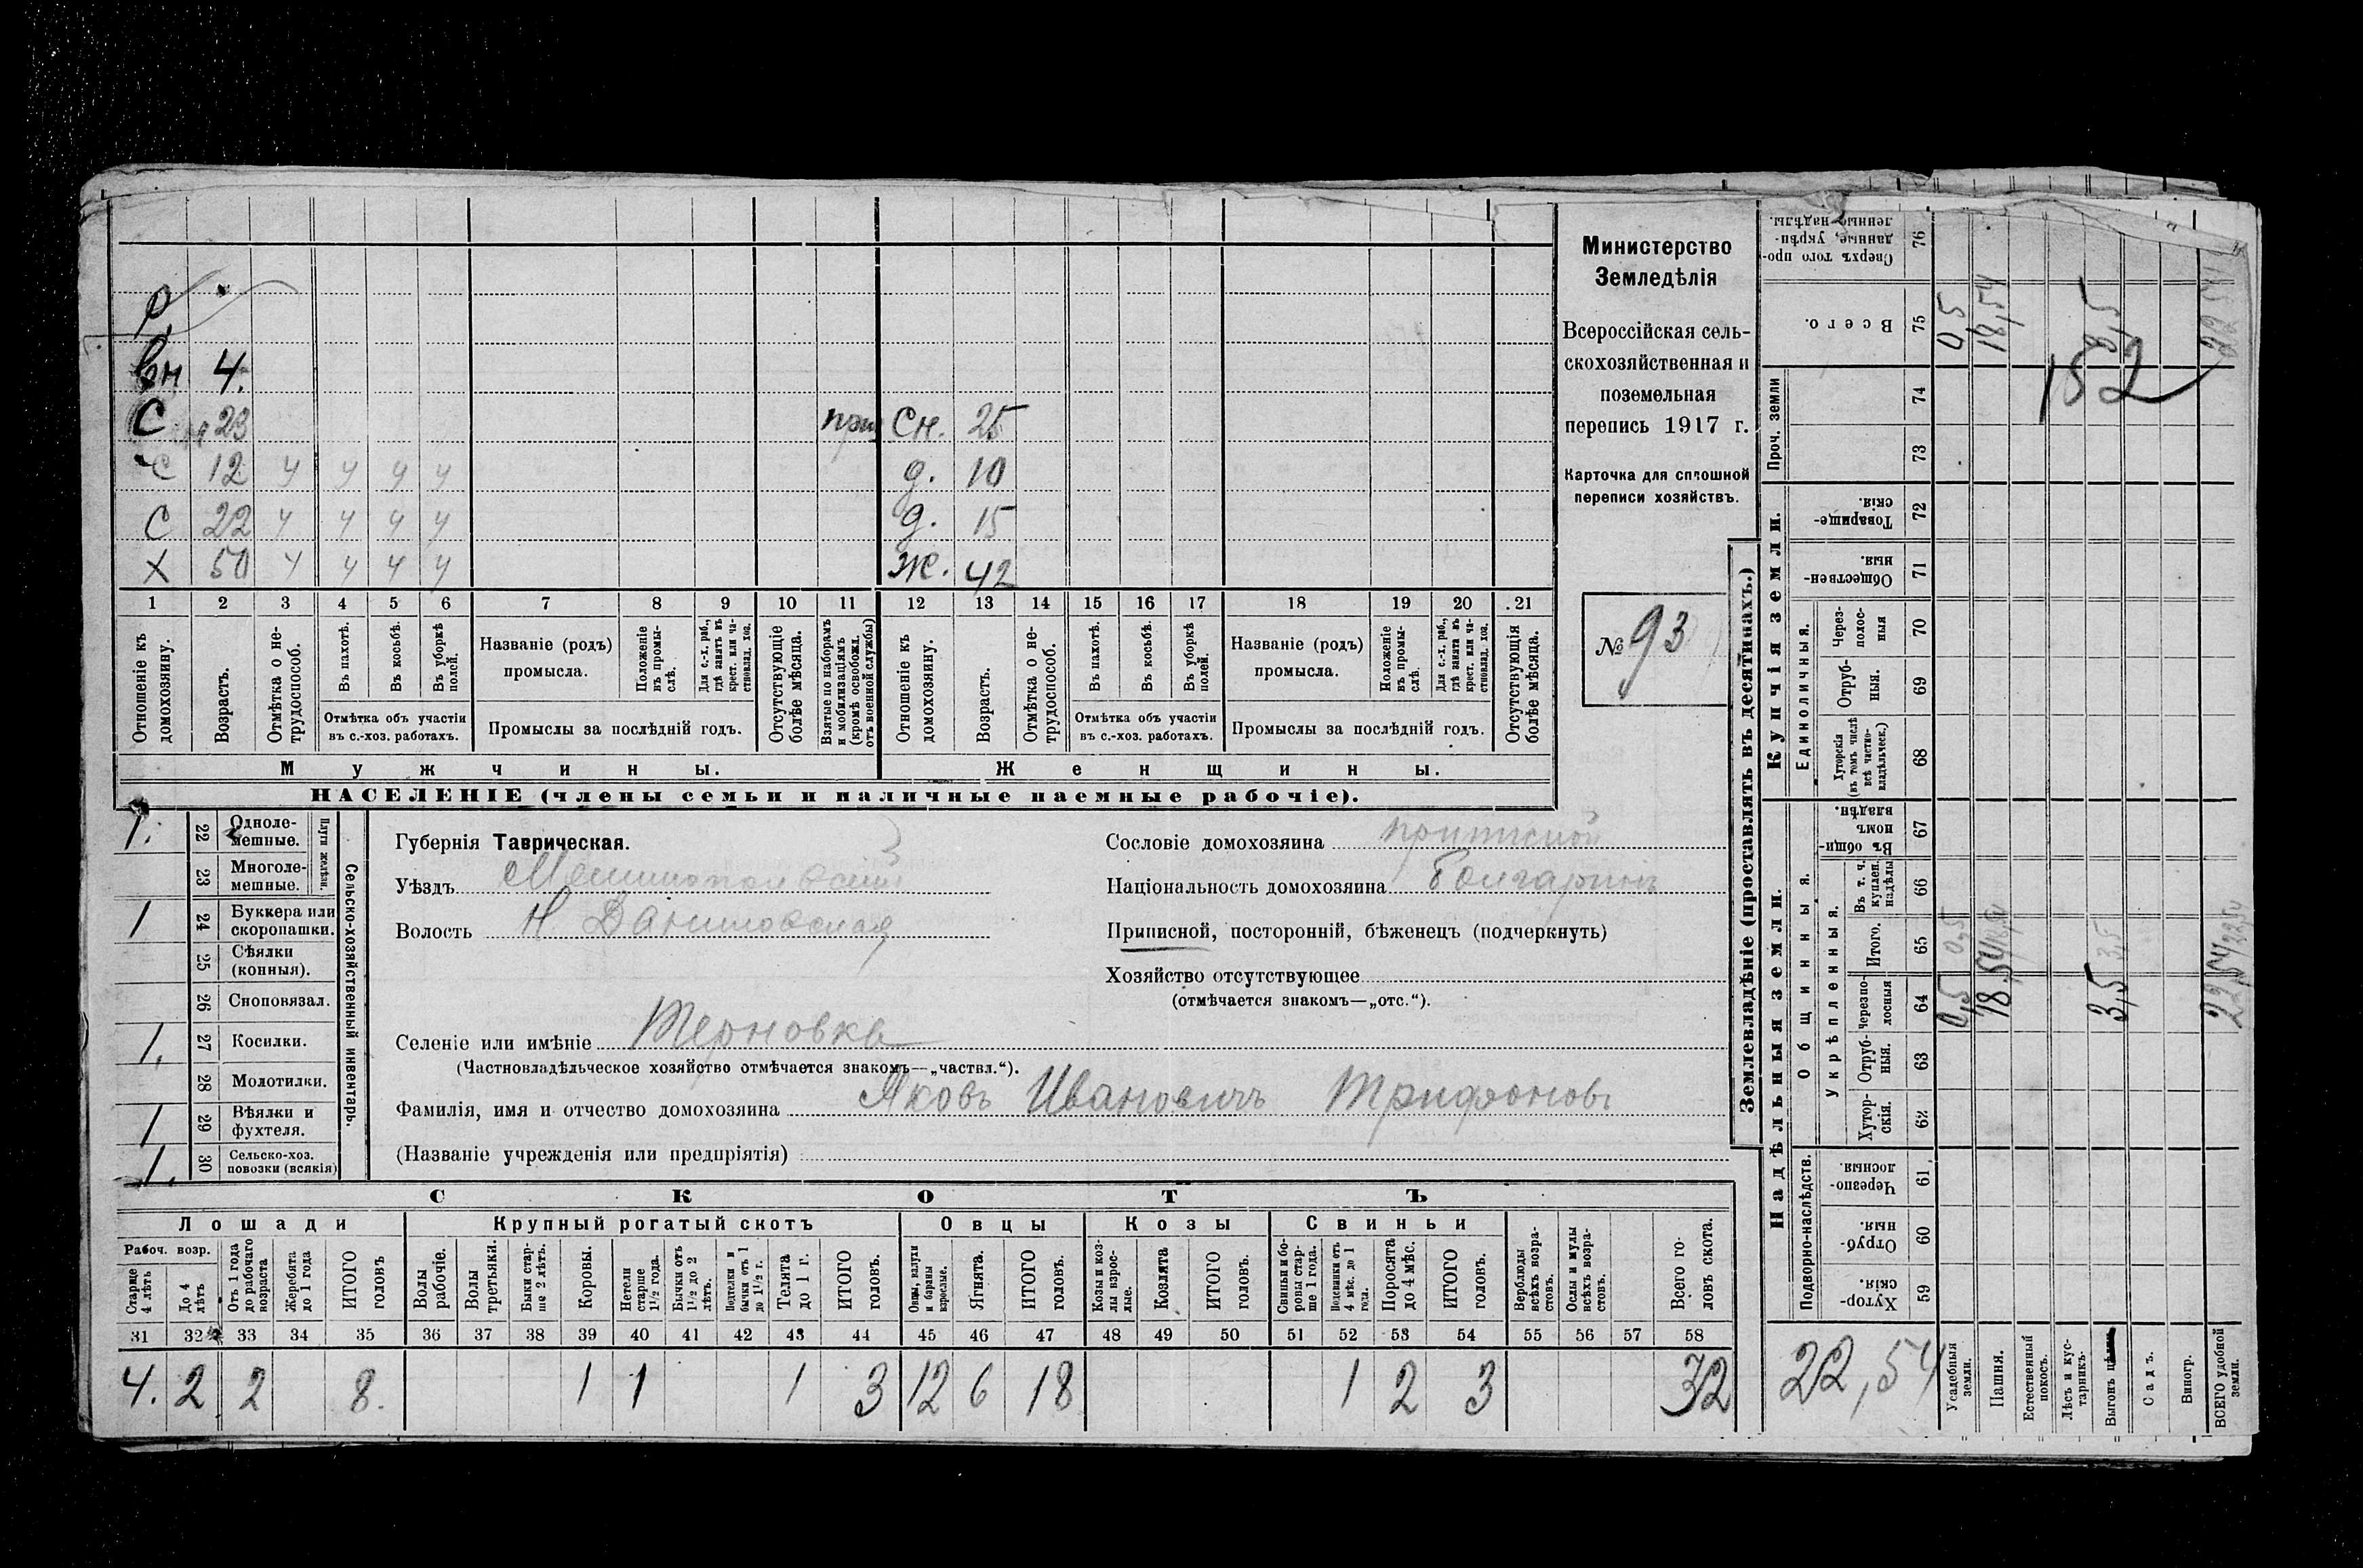 Министерство
Земледѣлія
Всероссійская сель-
скохозяйственная и
поземельная
перепись 1917 г.
Карточка для сплошной
переписи хозяйствъ.
№ 93
вн 4.
С 23 при Сн. 25
С 12 ч ч ч ч д. 10
С 22 ч ч ч ч д. 15
Х 50 ч ч ч ч Ж. 42
1 2 3 4 5 6 7 8 9 10 11 12 13 14 15 16 17 18 19 20 21
Отношеніе къ домохозяину.
Возрастъ.
Отмѣтка о не-трудоспособ.
Въ пахотѣ.
Въ косьбѣ.
Въ уборкѣ полей.
Отмѣтка объ участіи въ с.-хоз. работахъ.
Названіе (родъ) промысла.
Положеніе въ промы-слѣ.
Для с.-х. раб., гдѣ занятъ въ крест. или ча-стновлад. хоз.
Промыслы за послѣдній годъ.
Отсутствующіе болѣе мѣсяца.
Взятые по наборамъ и мобилизаціямъ (кромѣ освобожд. отъ военной службы)
Отношеніе къ домохозяину.
Возрастъ.
Отмѣтка о не-трудоспособ.
Въ пахотѣ.
Въ косьбѣ.
Въ уборкѣ полей.
Отмѣтка объ участіи въ с.-хоз. работахъ.
Названіе (родъ) промысла.
Положеніе въ промы-слѣ.
Для с.-х. раб., гдѣ занята въ крест. или ча-стновлад. хоз.
Промыслы за послѣдній годъ.
Отсутствующія болѣе мѣсяца.
Мужчины. Женщины.
НАСЕЛЕНІЕ (члены семьи и наличные наемные рабочіе).
Сельско-хозяйственный инвентарь.
Плуги желѣзн.
1. 22 Однолемешные.
23 Многоле-мешные.
1 24 Буккера или скоропашки.
25 Сѣялки (конныя).
26 Сноповязал.
1. 27 Косилки.
28 Молотилки.
1 29 Вѣялки и фухтеля.
1. 30 Сельско-хоз. повозки (всякія)
Губернія Таврическая.
Уѣздъ Мелитопольскій
Волость Н Даниловская
Сословіе домохозяина приписной
Національность домохозяина болгаринъ
Приписной, посторонній, бѣженецъ (подчеркнуть)
Хозяйство отсутствующее
(отмѣчается знакомъ—„отс.“).
Селеніе или имѣніе Терновка
(Частновладѣльческое хозяйство отмѣчается знакомъ—„частвл.“).
Фамилія, имя и отчество домохозяина Яковъ Ивановичъ Трифоновъ
(Названіе учрежденія или предпріятія)
СКОТЪ
Лошади Крупный рогатый скотъ Овцы Козы Свиньи
Рабоч. возр.
Старше 4 лѣтъ
До 4 лѣтъ
Отъ 1 года до рабочаго возраста
Жеребята до 1 года
ИТОГО головъ
Волы рабочіе.
Волы третьяки.
Быки стар-ше 2 лѣтъ.
Коровы.
Нетели старше 1½ года.
Бычки отъ 1½ до 2 лѣтъ.
Подтелки и бычки отъ 1 до 1½ г.
Телята до 1 г.
ИТОГО головъ.
Овцы, валухи и бараны взрослые.
Ягнята.
ИТОГО головъ.
Козы и коз-лы взрос-лые.
Козлята
ИТОГО головъ.
Свиньи и бо-ровы стар-ше 1 года.
Подсвинки отъ 4 мѣс. до 1 года.
Поросята до 4 мѣс.
ИТОГО головъ.
Верблюды всѣхъ возра-стовъ.
Ослы и мулы всѣхъ возра-стовъ.
Всего го-ловъ скота.
31 32 33 34 35 36 37 38 39 40 41 42 43 44 45 46 47 48 49 50 51 52 53 54 55 56 57 58
4. 2 2 8. 1 1 1 3 12 6 18 1 2 3 32
Землевладѣніе (проставлять въ десятинахъ.)
Надѣльныя земли. Купчія земли. Проч. земли
Подворно-наслѣдств.
Общинныя.
Укрѣпленныя.
Единоличныя.
Сверхъ того про-данные, укрѣп-ленные надѣлы. 76
Всего. 75 0,5 18,54 3,5 22,54
152
74
73
Товарище-скія. 72
Обществен-ныя. 71
Через-полос-ныя 70
Отруб-ныя. 69
Хуторскія (въ томъ числѣ всѣ частно-владѣльческ.) 68
Въ общи-номъ владѣн. 67
Въ т. ч. куплен. надѣлы 66
Итого. 65 0,5 18,54 3,5 22,54
Черезпо-лосныя 64 0,5 18,54 3,5 22,54
Отруб-ныя. 63
Хутор-скія. 62
Черезпо-лосныя. 61
Отруб-ныя. 60
Хутор-скія. 59
22,54
Усадебныя земли.
Пашня.
Естественный покосъ.
Лѣсъ и кус-тарникъ.
Выгонъ
Садъ.
Виногр.
ВСЕГО удобной земли.